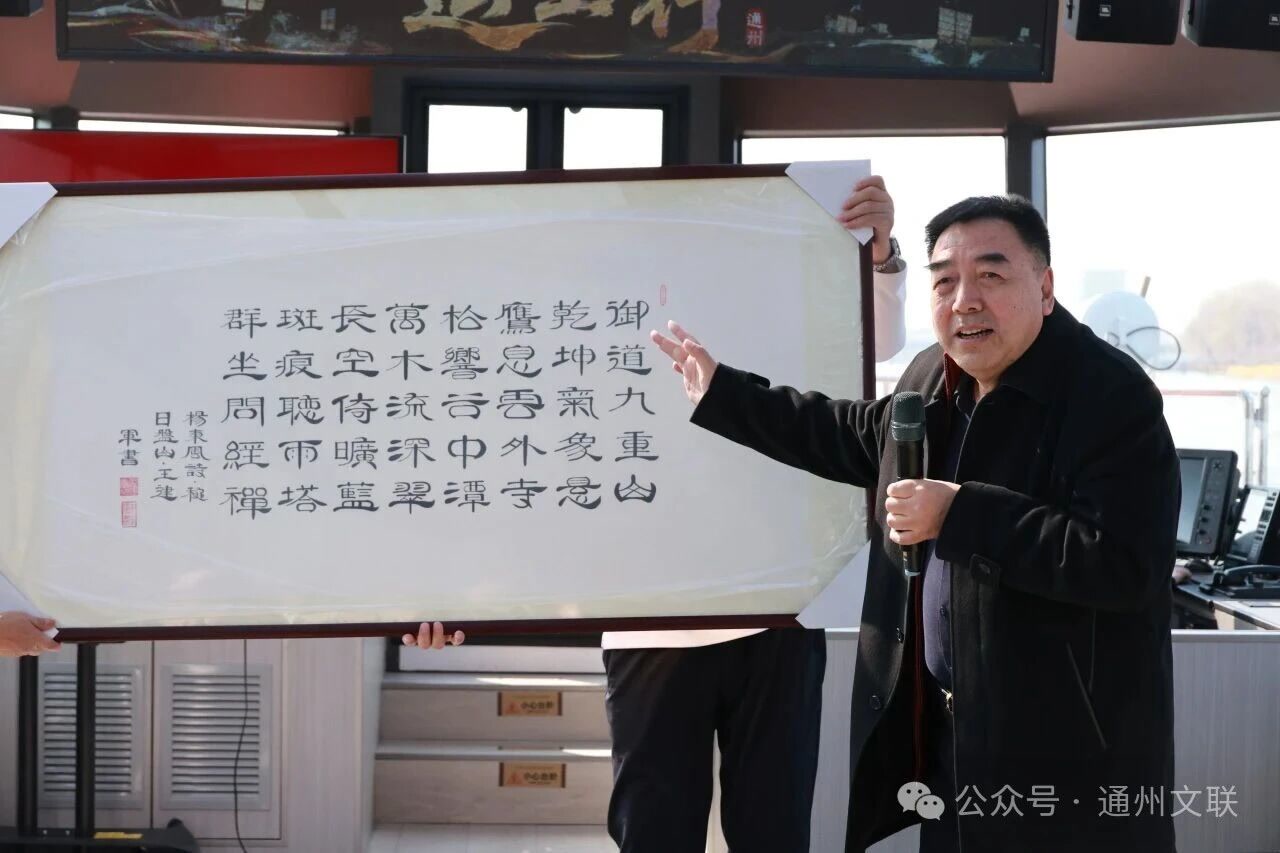 通州
JBL
御道九重山
乾坤氣象悬
鷹息雲外寺
松響谷中潭
萬木流深翠
長空倚曠藍
斑痕聽雨塔
群坐問經禪
楊東鳳詩·
日盤山·王建
軍書
小心台阶
小心台阶
公众号·通州文联